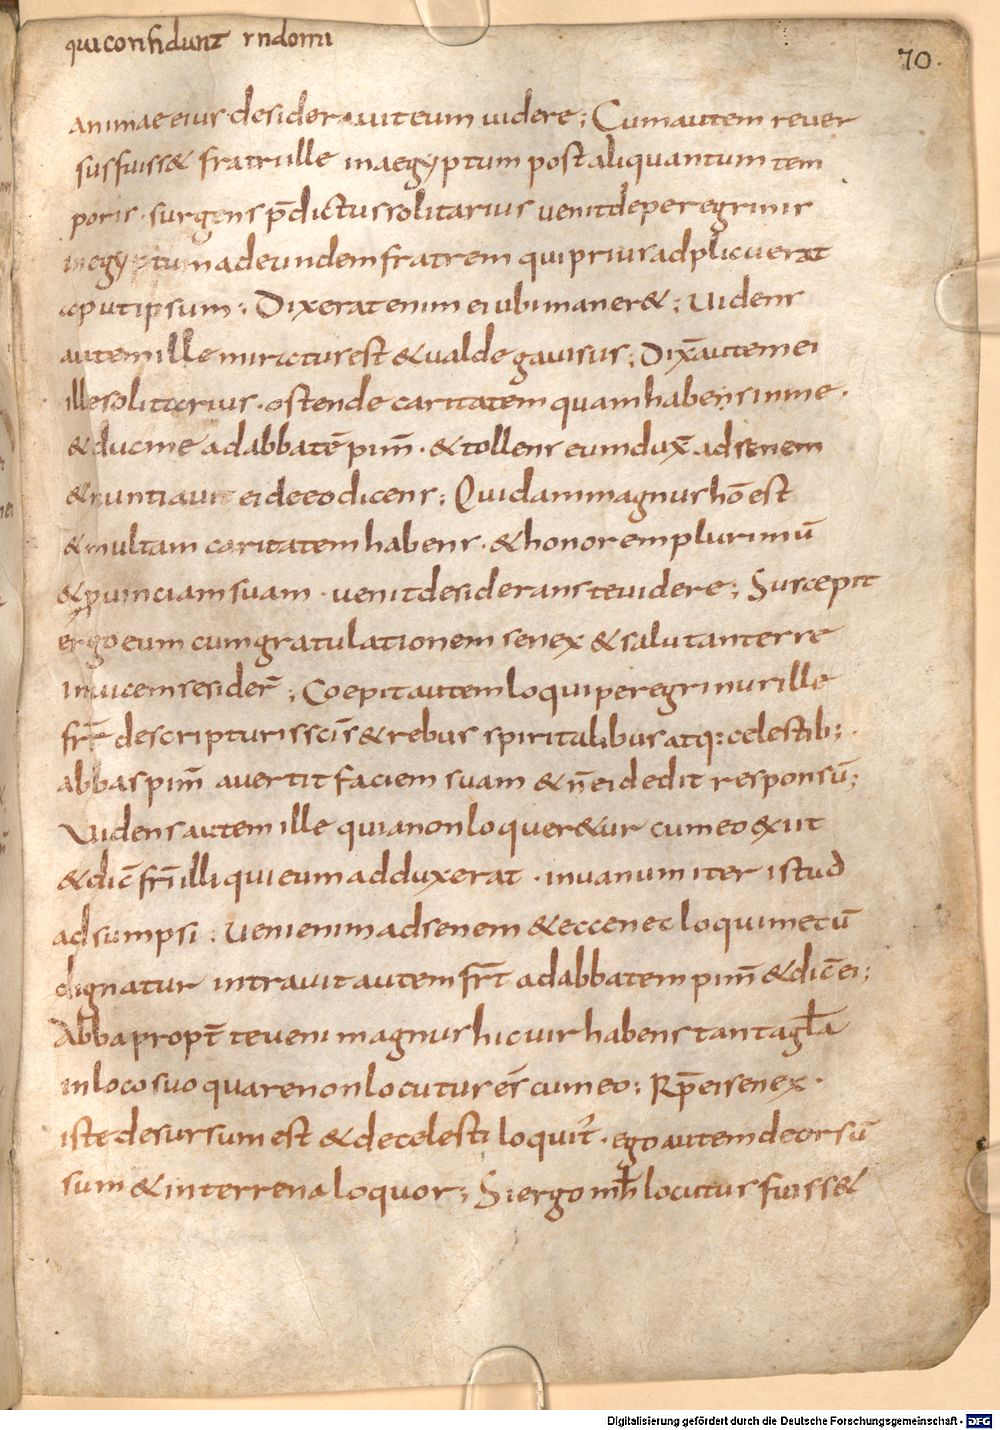 qui confidunt in domi
70.
animae eius desiderauit eum uidere; Cum autem reuer
sus fuiss& frater ille in aegyptum post aliquantum tem
poris · surgens p̄dictus solitarius uenit de peregrinis
in egyptum ad eundem fratrem qui prius adplicuerat
aput ipsum; Dixerat enim ei ubi maner&; Uidens
autem ille miratus est & ualde gauisus; Dix̄ autem ei
ille solitarius · ostende caritatem quam habens in me ·
& duc me ad abbatē pim̄ · & tollens eum dux̄ ad senem
& nuntiauit ei de eo dicens; Quidam magnus hō est
& multam caritatem habens · & honorem plurimū
& ꝓuinciam suam · uenit desiderans te uidere; Suscepit
ergo eum cum gratulationem senex & salutanter se
inuicem resider̄; Coepit autem loqui peregrinus ille
fr̄t de scripturis sc̄is & rebus spiritalibus atq: celestib;
abbas pim̄ auertit faciem suam & n̄ ei dedit responsū;
Uidens autem ille quia non loquer&ur cum eo exiit
& dic̄ fr̄i illi qui eum adduxerat · in uanum iter istud
adsumpsi; Ueni enim ad senem & ecce nec loqui mecū
dignatur intrauit autem fr̄t ad abbatem pim̄ & dic̄ ei;
Abba propt̄ te ueni magnus hic uir habens tanta gl̄a
in loco suo quare non locutus es̄ cum eo; Rp̄ ei senex ·
iste desursum est & de celesti loquit̄ · ego autem deorsū
sum & in terrena loquor; Si ergo mh̄ locutus fuiss&
Digitalisierung gefördert durch die Deutsche Forschungsgemeinschaft - DFG